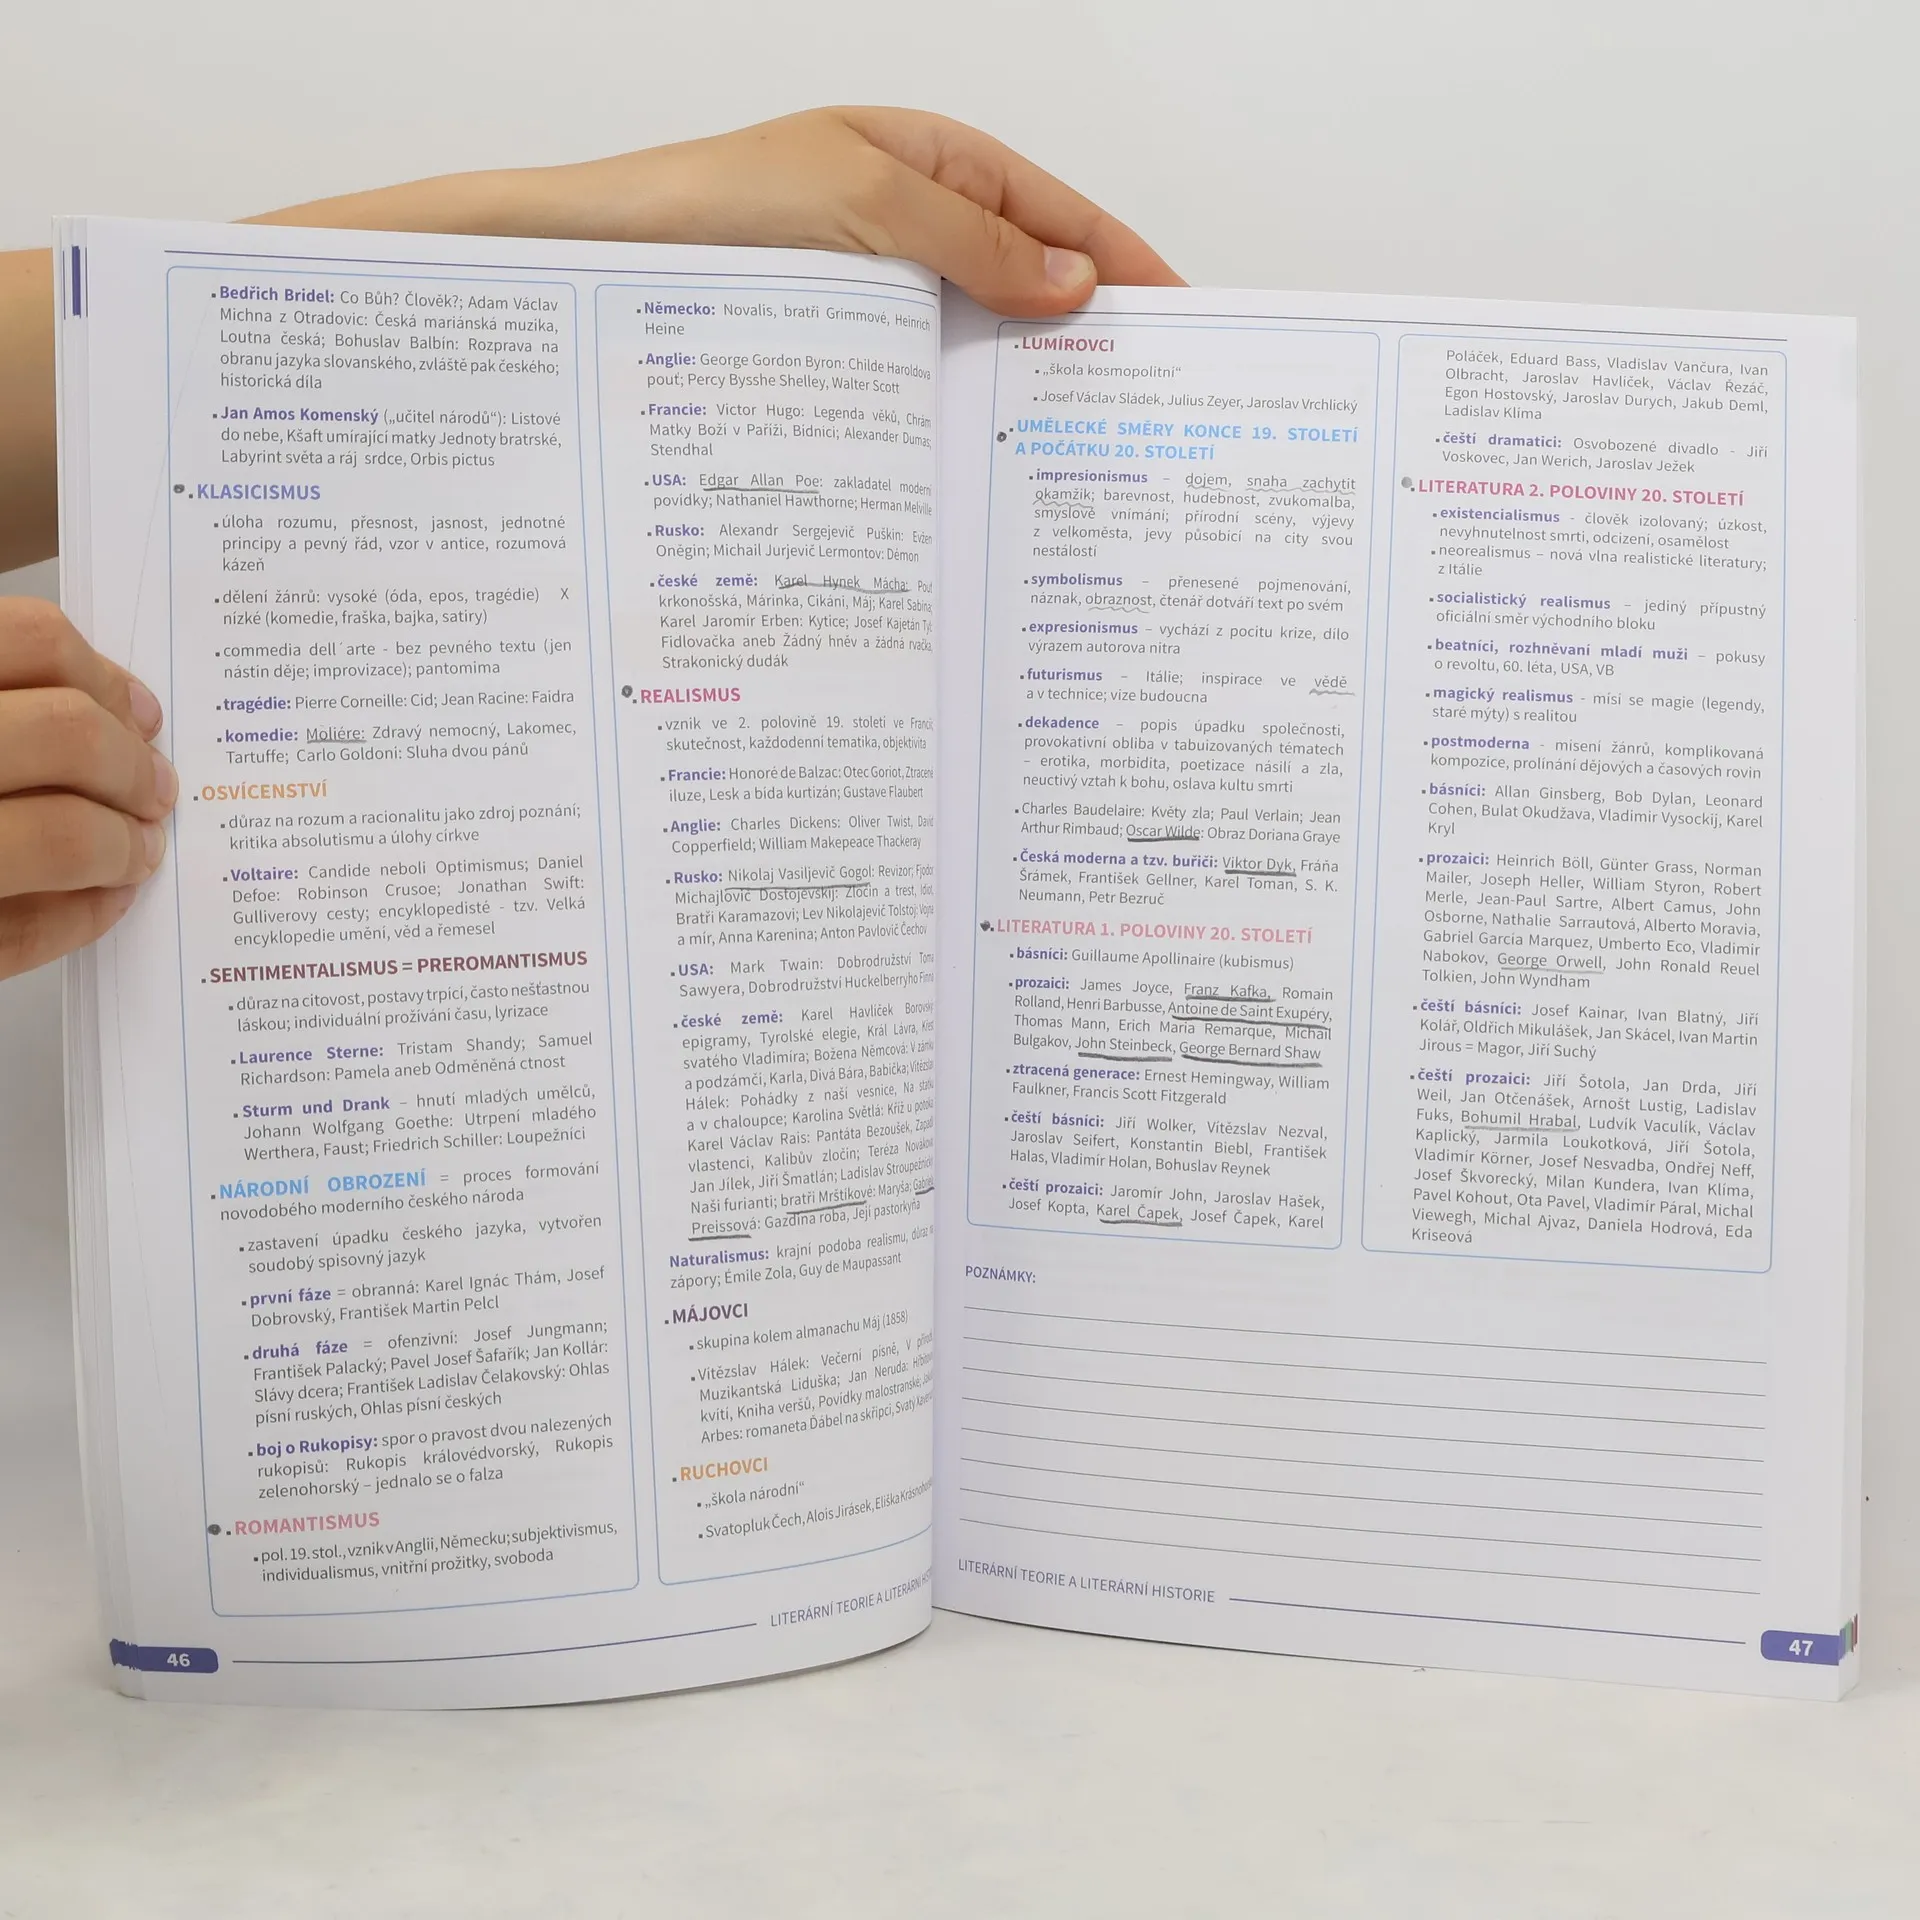 . Bedřich Bridel: Co Bůh? Člověk?; Adam Václav
Michna z Otradovic: Česká mariánská muzika,
Loutna česká; Bohuslav Balbín: Rozprava na
obranu jazyka slovanského, zvláště pak českého;
historická díla
. Jan Amos Komenský („učitel národů“): Listové
do nebe, Kšaft umírající matky Jednoty bratrské,
Labyrint světa a ráj srdce, Orbis pictus
. KLASICISMUS
. úloha rozumu, přesnost, jasnost, jednotné
principy a pevný řád, vzor v antice, rozumová
kázeň
. dělení žánrů: vysoké (óda, epos, tragédie) X
nízké (komedie, fraška, bajka, satiry)
. commedia dell´arte - bez pevného textu (jen
nástin děje; improvizace); pantomima
. tragédie: Pierre Corneille: Cid; Jean Racine: Faidra
. komedie: Moliére: Zdravý nemocný, Lakomec,
Tartuffe; Carlo Goldoni: Sluha dvou pánů
. OSVÍCENSTVÍ
. důraz na rozum a racionalitu jako zdroj poznání;
kritika absolutismu a úlohy církve
. Voltaire: Candide neboli Optimismus; Daniel
Defoe: Robinson Crusoe; Jonathan Swift:
Gulliverovy cesty; encyklopedisté - tzv. Velká
encyklopedie umění, věd a řemesel
. SENTIMENTALISMUS = PREROMANTISMUS
. důraz na citovost, postavy trpící, často nešťastnou
láskou; individuální prožívání času, lyrizace
. Laurence Sterne: Tristam Shandy; Samuel
Richardson: Pamela aneb Odměněná ctnost
. Sturm und Drank – hnutí mladých umělců,
Johann Wolfgang Goethe: Utrpení mladého
Werthera, Faust; Friedrich Schiller: Loupežníci
. NÁRODNÍ OBROZENÍ = proces formování
novodobého moderního českého národa
. zastavení úpadku českého jazyka, vytvořen
soudobý spisovný jazyk
. první fáze = obranná: Karel Ignác Thám, Josef
Dobrovský, František Martin Pelcl
. druhá fáze = ofenzivní: Josef Jungmann;
František Palacký; Pavel Josef Šafařík; Jan Kollár:
Slávy dcera; František Ladislav Čelakovský: Ohlas
písní ruských, Ohlas písní českých
. boj o Rukopisy: spor o pravost dvou nalezených
rukopisů: Rukopis královédvorský, Rukopis
zelenohorský – jednalo se o falza
. ROMANTISMUS
. pol. 19. stol., vznik v Anglii, Německu; subjektivismus,
individualismus, vnitřní prožitky, svoboda
. Německo: Novalis, bratři Grimmové, Heinrich
Heine
. Anglie: George Gordon Byron: Childe Haroldova
pouť; Percy Bysshe Shelley, Walter Scott
. Francie: Victor Hugo: Legenda věků, Chrám
Matky Boží v Paříži, Bídníci; Alexander Dumas;
Stendhal
. USA: Edgar Allan Poe: zakladatel moderní
povídky; Nathaniel Hawthorne; Herman Melville
. Rusko: Alexandr Sergejevič Puškin: Evžen
Oněgin; Michail Jurjevič Lermontov: Démon
. české země: Karel Hynek Mácha: Pouť
krkonošská, Márinka, Cikáni, Máj; Karel Sabina;
Karel Jaromír Erben: Kytice; Josef Kajetán Tyl:
Fidlovačka aneb Žádný hněv a žádná rvačka,
Strakonický dudák
. REALISMUS
. vznik ve 2. polovině 19. století ve Francii;
skutečnost, každodenní tematika, objektivita
. Francie: Honoré de Balzac: Otec Goriot, Ztracené
iluze, Lesk a bída kurtizán; Gustave Flaubert
. Anglie: Charles Dickens: Oliver Twist, David
Copperfield; William Makepeace Thackeray
. Rusko: Nikolaj Vasiljevič Gogol: Revizor; Fjodor
Michajlovič Dostojevskij: Zločin a trest, Idiot,
Bratři Karamazovi; Lev Nikolajevič Tolstoj: Vojna
a mír, Anna Karenina; Anton Pavlovič Čechov
. USA: Mark Twain: Dobrodružství Toma
Sawyera, Dobrodružství Huckelberryho Finna
. české země: Karel Havlíček Borovský:
epigramy, Tyrolské elegie, Král Lávra, Křest
svatého Vladimíra; Božena Němcová: V zámku
a podzámčí, Karla, Divá Bára, Babička; Vítězslav
Hálek: Pohádky z naší vesnice, Na statku
a v chaloupce; Karolina Světlá: Kříž u potoka
Karel Václav Rais: Pantáta Bezoušek, Zapadlí
vlastenci, Kalibův zločin; Teréza Nováková:
Jan Jílek, Jiří Šmatlán; Ladislav Stroupežnický:
Naši furianti; bratři Mrštíkové: Maryša; Gabriela
Preissová: Gazdina roba, Její pastorkyňa
Naturalismus: krajní podoba realismu, důraz na
zápory; Émile Zola, Guy de Maupassant
. MÁJOVCI
. skupina kolem almanachu Máj (1858)
. Vítězslav Hálek: Večerní písně, V přírodě,
Muzikantská Liduška; Jan Neruda: Hřbitovní
kvítí, Kniha veršů, Povídky malostranské; Jakub
Arbes: romaneta Ďábel na skřipci, Svatý Xaverius
. RUCHOVCI
. „škola národní“
. Svatopluk Čech, Alois Jirásek, Eliška Krásnohorská
LITERÁRNÍ TEORIE A LITERÁRNÍ
46
. LUMÍROVCI
. „škola kosmopolitní“
. Josef Václav Sládek, Julius Zeyer, Jaroslav Vrchlický
. UMĚLECKÉ SMĚRY KONCE 19. STOLETÍ
A POČÁTKU 20. STOLETÍ
. impresionismus – dojem, snaha zachytit
okamžik; barevnost, hudebnost, zvukomalba,
smyslové vnímání; přírodní scény, výjevy
z velkoměsta, jevy působící na city svou
nestálostí
. symbolismus – přenesené pojmenování,
náznak, obraznost, čtenář dotváří text po svém
. expresionismus – vychází z pocitu krize, dílo
výrazem autorova nitra
. futurismus – Itálie; inspirace ve vědě
a v technice; vize budoucna
. dekadence – popis úpadku společnosti,
provokativní obliba v tabuizovaných tématech
– erotika, morbidita, poetizace násilí a zla,
neuctivý vztah k bohu, oslava kultu smrti
. Charles Baudelaire: Květy zla; Paul Verlain; Jean
Arthur Rimbaud; Oscar Wilde: Obraz Doriana Graye
. Česká moderna a tzv. buřiči: Viktor Dyk, Fráňa
Šrámek, František Gellner, Karel Toman, S. K.
Neumann, Petr Bezruč
. LITERATURA 1. POLOVINY 20. STOLETÍ
. básníci: Guillaume Apollinaire (kubismus)
. prozaici: James Joyce, Franz Kafka, Romain
Rolland, Henri Barbusse, Antoine de Saint Exupéry,
Thomas Mann, Erich Maria Remarque, Michail
Bulgakov, John Steinbeck, George Bernard Shaw
. ztracená generace: Ernest Hemingway, William
Faulkner, Francis Scott Fitzgerald
. čeští básníci: Jiří Wolker, Vítězslav Nezval,
Jaroslav Seifert, Konstantin Biebl, František
Halas, Vladimír Holan, Bohuslav Reynek
. čeští prozaici: Jaromír John, Jaroslav Hašek,
Josef Kopta, Karel Čapek, Josef Čapek, Karel
Poláček, Eduard Bass, Vladislav Vančura, Ivan
Olbracht, Jaroslav Havlíček, Václav Řezáč,
Egon Hostovský, Jaroslav Durych, Jakub Deml,
Ladislav Klíma
. čeští dramatici: Osvobozené divadlo - Jiří
Voskovec, Jan Werich, Jaroslav Ježek
. LITERATURA 2. POLOVINY 20. STOLETÍ
. existencialismus - člověk izolovaný; úzkost,
nevyhnutelnost smrti, odcizení, osamělost
. neorealismus – nová vlna realistické literatury;
z Itálie
. socialistický realismus – jediný přípustný
oficiální směr východního bloku
. beatníci, rozhněvaní mladí muži – pokusy
o revoltu, 60. léta, USA, VB
. magický realismus - mísí se magie (legendy,
staré mýty) s realitou
. postmoderna - mísení žánrů, komplikovaná
kompozice, prolínání dějových a časových rovin
. básníci: Allan Ginsberg, Bob Dylan, Leonard
Cohen, Bulat Okudžava, Vladimir Vysockij, Karel
Kryl
. prozaici: Heinrich Böll, Günter Grass, Norman
Mailer, Joseph Heller, William Styron, Robert
Merle, Jean-Paul Sartre, Albert Camus, John
Osborne, Nathalie Sarrautová, Alberto Moravia,
Gabriel Garcia Marquez, Umberto Eco, Vladimir
Nabokov, George Orwell, John Ronald Reuel
Tolkien, John Wyndham
. čeští básníci: Josef Kainar, Ivan Blatný, Jiří
Kolář, Oldřich Mikulášek, Jan Skácel, Ivan Martin
Jirous = Magor, Jiří Suchý
. čeští prozaici: Jiří Šotola, Jan Drda, Jiří
Weil, Jan Otčenášek, Arnošt Lustig, Ladislav
Fuks, Bohumil Hrabal, Ludvík Vaculík, Václav
Kaplický, Jarmila Loukotková, Jiří Šotola,
Vladimír Körner, Josef Nesvadba, Ondřej Neff,
Josef Škvorecký, Milan Kundera, Ivan Klíma,
Pavel Kohout, Ota Pavel, Vladimír Páral, Michal
Viewegh, Michal Ajvaz, Daniela Hodrová, Eda
Kriseová
POZNÁMKY:
LITERÁRNÍ TEORIE A LITERÁRNÍ HISTORIE
47